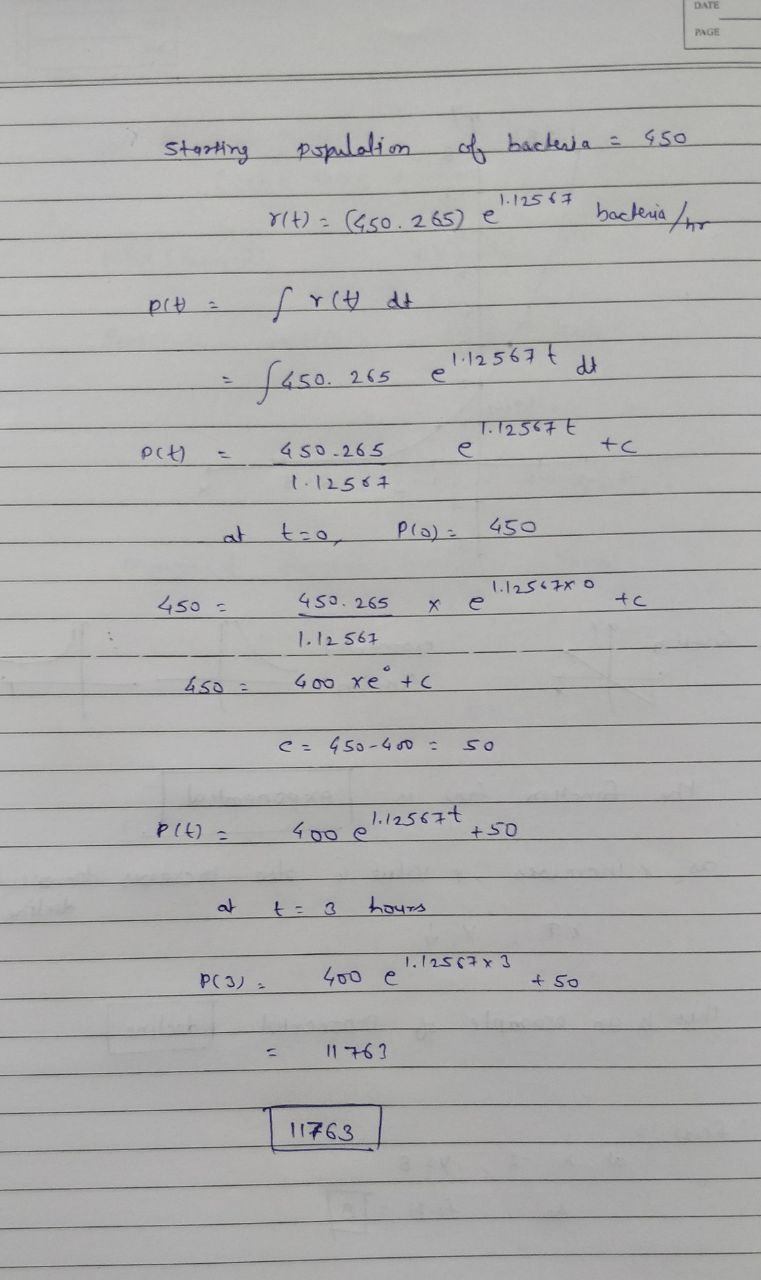 DATE
PAGE
Starting population of bacteria = 450
r(t) = (450.265) e^1.12567 bacteria/hr
P(t) = ∫ r(t) dt
= ∫ 450.265 e^1.12567t dt
P(t) = 450.265/1.12567 e^1.12567t + c
at t=0, P(0) = 450
450 = 450.265/1.12567 × e^1.12567×0 + c
450 = 400 × e^0 + c
c = 450-400 = 50
P(t) = 400 e^1.12567t + 50
at t = 3 hours
P(3) = 400 e^1.12567×3 + 50
= 11763
11763